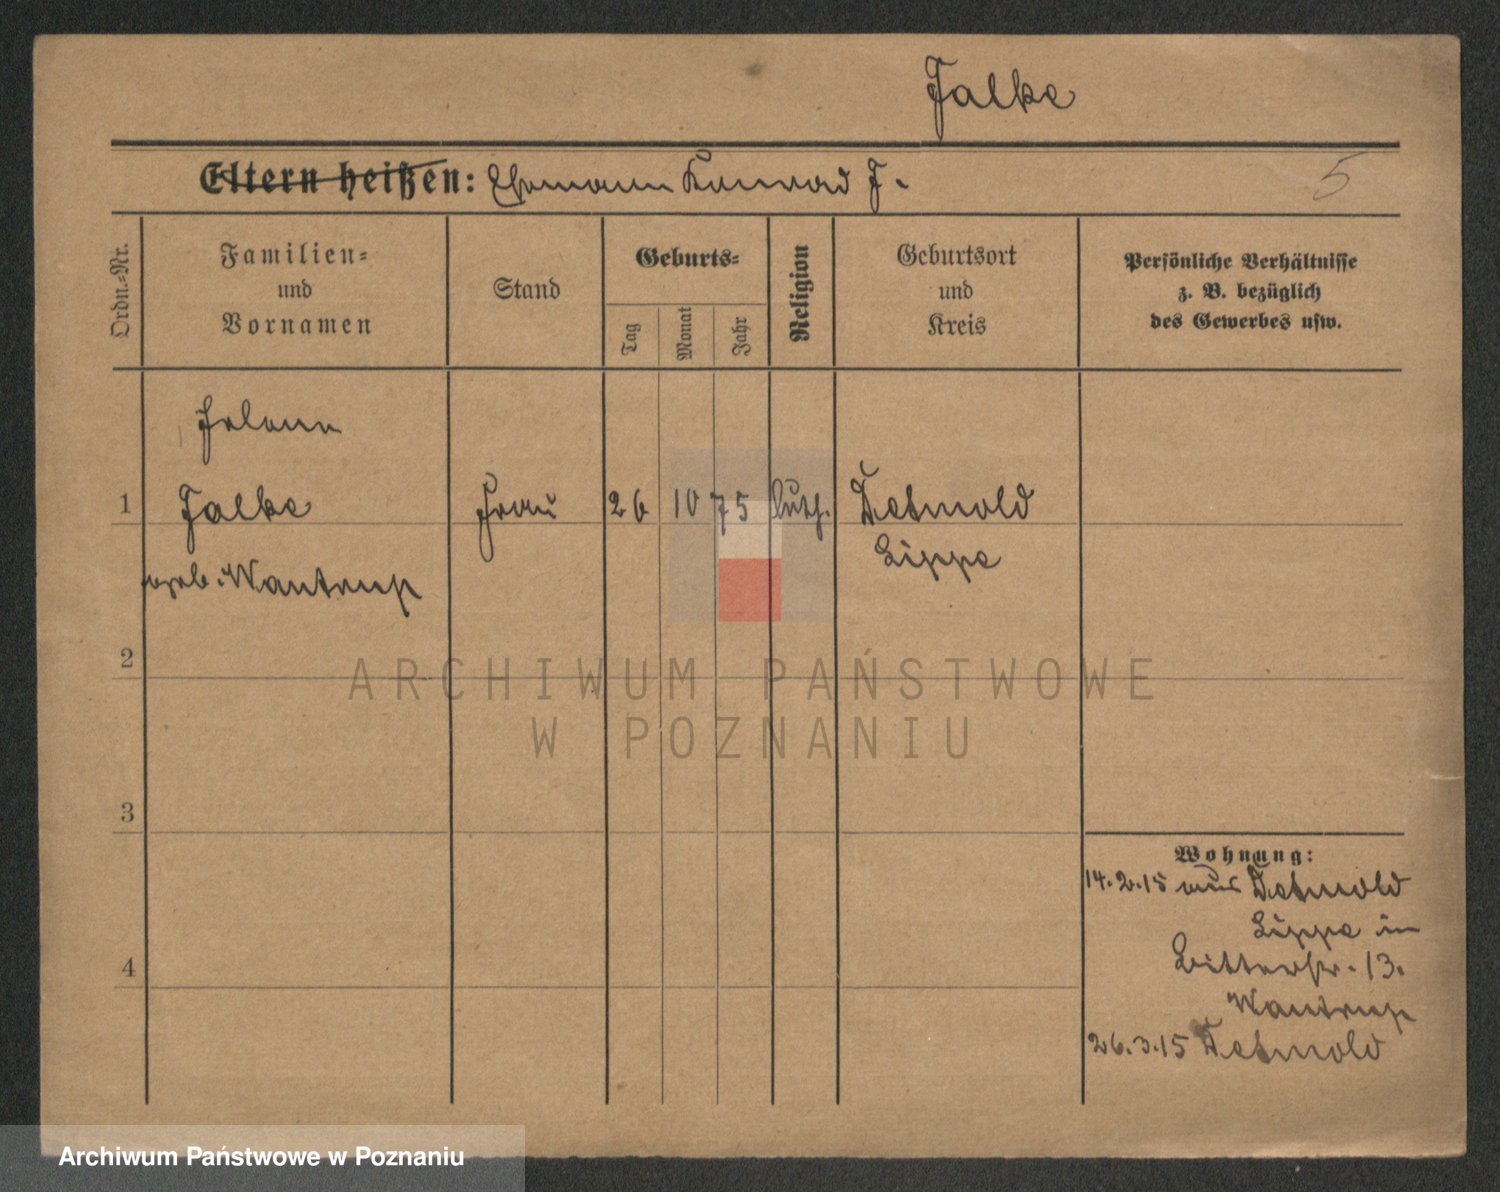 Falke
Eltern heißen: Ehemann Konrad F.
5
Ordn.=Nr.
Familien=
und
Vornamen
Stand
Geburts=
Tag
Monat
Jahr
Religion
Geburtsort
und
Kreis
Persönliche Verhältnisse
z. B. bezüglich
des Gewerbes usw.
Helene
1 Falke Frau 26 10 75 luth. Detmold
Lippe
geb. Wantrup
2
3
4
Wohnung:
14.2.15 aus Detmold
Lippe in
Ritterstr. 13.
Wantrup
26.3.15 Detmold
ARCHIWUM PAŃSTWOWE
W POZNANIU
Archiwum Państwowe w Poznaniu